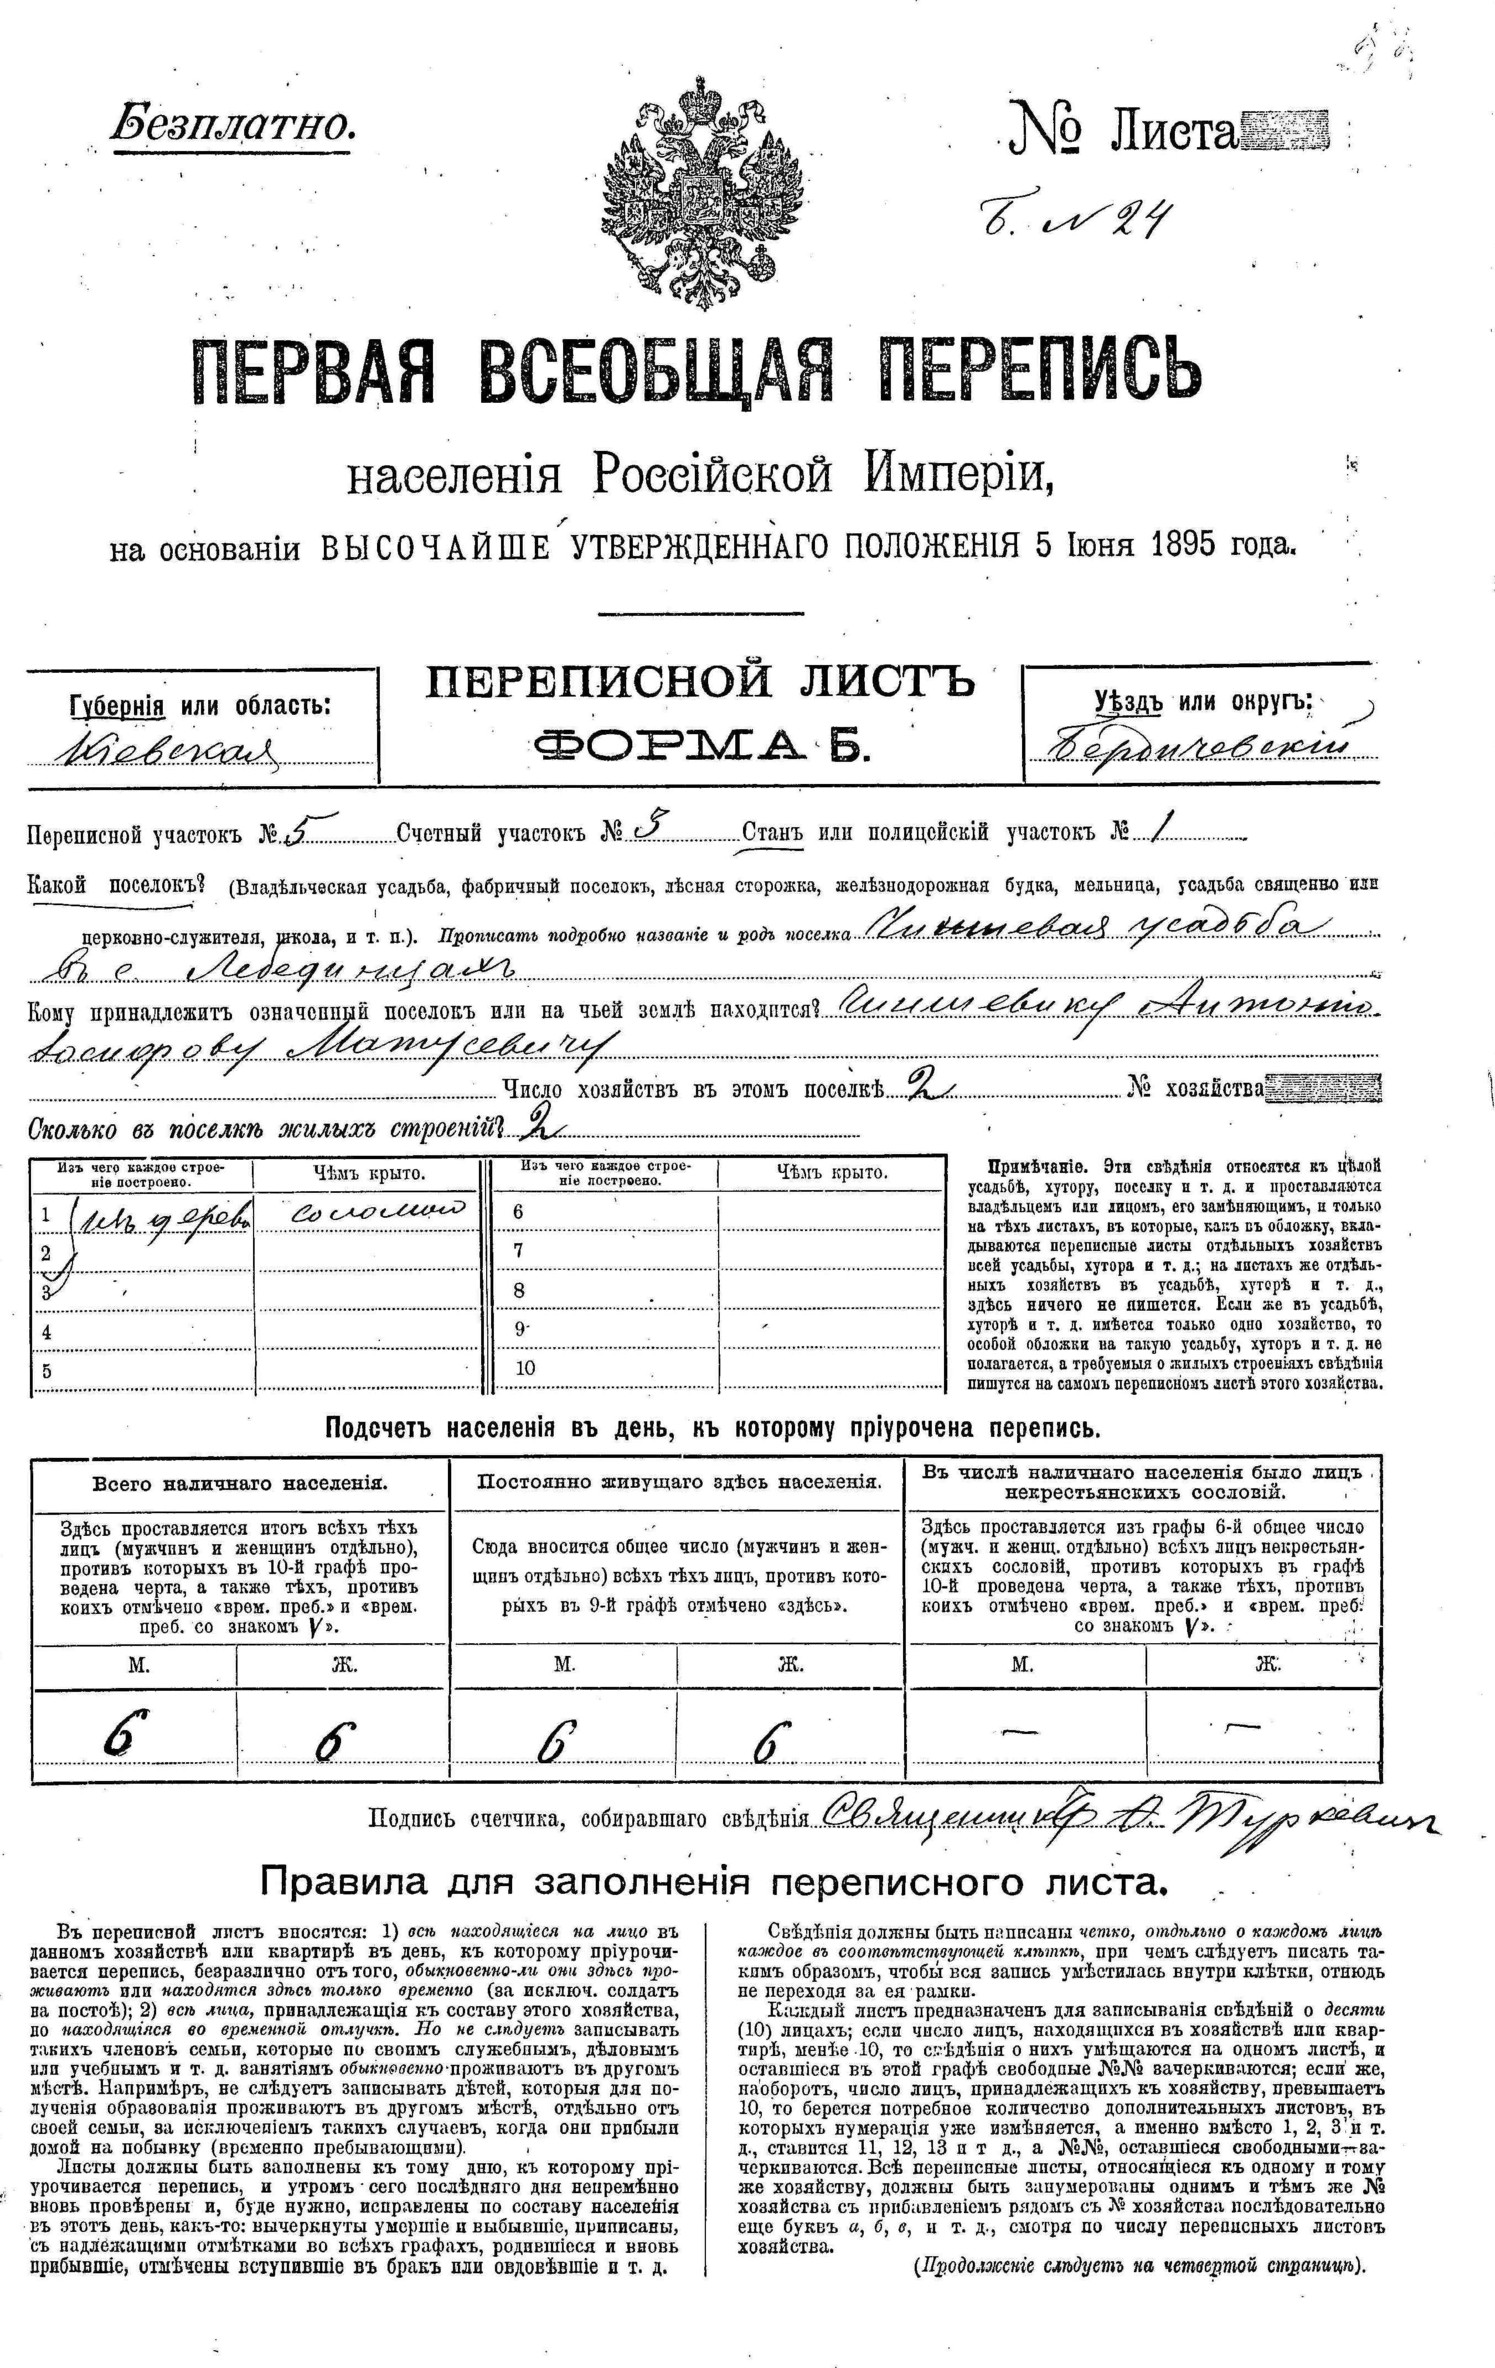 Безплатно.
№ Листа
Б. № 24
ПЕРВАЯ ВСЕОБЩАЯ ПЕРЕПИСЬ
населенія Россійской Имперіи,
на основаніи ВЫСОЧАЙШЕ УТВЕРЖДЕННАГО ПОЛОЖЕНІЯ 5 Іюня 1895 года.
Губернія или область:
Кіевская
ПЕРЕПИСНОЙ ЛИСТЪ
ФОРМА Б.
Уѣздъ или округъ:
Бердичевскій
Переписной участокъ № 5 Счетный участокъ № 3 Станъ или полицейскій участокъ № 1
Какой поселокъ? (Владѣльческая усадьба, фабричный поселокъ, лѣсная сторожка, желѣзнодорожная будка, мельница, усадьба священно или
церковно-служителя, школа, и т. п.). Прописать подробно названіе и родъ поселка Чиншевая усадьба
въ с. Лебединцахъ
Кому принадлежитъ означенный поселокъ или на чьей землѣ находится? Чиншевику Антонію
Матусевичу
Число хозяйствъ въ этомъ поселкѣ 2 № хозяйства
Сколько въ поселкѣ жилыхъ строеній? 2
Изъ чего каждое строе-
ніе построено.
Чѣмъ крыто.
Изъ чего каждое строе-
ніе построено.
Чѣмъ крыто.
1 изъ дерева соломой 6
2 7
3 8
4 9
5 10
Примѣчаніе. Эти свѣдѣнія относятся къ цѣлой
усадьбѣ, хутору, поселку и т. д. и проставляются
владѣльцемъ или лицомъ, его замѣняющимъ, и только
на тѣхъ листахъ, въ которые, какъ въ обложку, вкла-
дываются переписные листы отдѣльныхъ хозяйствъ
всей усадьбы, хутора и т. д.; на листахъ же отдѣль-
ныхъ хозяйствъ въ усадьбѣ, хуторѣ и т. д.,
здѣсь ничего не пишется. Если же въ усадьбѣ,
хуторѣ и т. д. имѣется только одно хозяйство, то
особой обложки на такую усадьбу, хуторъ и т. д. не
полагается, а требуемыя о жилыхъ строеніяхъ свѣдѣнія
пишутся на самомъ переписномъ листѣ этого хозяйства.
Подсчетъ населенія въ день, къ которому пріурочена перепись.
Всего наличнаго населенія.
Здѣсь проставляется итогъ всѣхъ тѣхъ
лицъ (мужчинъ и женщинъ отдѣльно),
противъ которыхъ въ 10-й графѣ про-
ведена черта, а также тѣхъ, противъ
коихъ отмѣчено «врем. преб.» и «врем.
преб. со знакомъ V».
М. Ж.
6 6
Постоянно живущаго здѣсь населенія.
Сюда вносится общее число (мужчинъ и жен-
щинъ отдѣльно) всѣхъ тѣхъ лицъ, противъ кото-
рыхъ въ 9-й графѣ отмѣчено «здѣсь».
М. Ж.
6 6
Въ числѣ наличнаго населенія было лицъ
некрестьянскихъ сословій.
Здѣсь проставляется изъ графы 6-й общее число
(мужч. и женщ. отдѣльно) всѣхъ лицъ некрестьян-
скихъ сословій, противъ которыхъ въ графѣ
10-й проведена черта, а также тѣхъ, противъ
коихъ отмѣчено «врем. преб.» и «врем. преб.
со знакомъ V».
М. Ж.
— —
Подпись счетчика, собиравшаго свѣдѣнія Священникъ А. Туркевич
Правила для заполненія переписного листа.
Въ переписной листъ вносятся: 1) всѣ находящіеся на лицо въ
данномъ хозяйствѣ или квартирѣ въ день, къ которому пріурочи-
вается перепись, безразлично отъ того, обыкновенно-ли они здѣсь про-
живаютъ или находятся здѣсь только временно (за исключ. солдатъ
на постоѣ); 2) всѣ лица, принадлежащія къ составу этого хозяйства,
но находящіяся во временной отлучкѣ. Но не слѣдуетъ записывать
такихъ членовъ семьи, которые по своимъ служебнымъ, дѣловымъ
или учебнымъ и т. д. занятіямъ обыкновенно проживаютъ въ другомъ
мѣстѣ. Напримѣръ, не слѣдуетъ записывать дѣтей, которыя для по-
лученія образованія проживаютъ въ другомъ мѣстѣ, отдѣльно отъ
своей семьи, за исключеніемъ такихъ случаевъ, когда они прибыли
домой на побывку (временно пребывающими).
Листы должны быть заполнены къ тому дню, къ которому прі-
урочивается перепись, и утромъ сего послѣдняго дня непремѣнно
вновь провѣрены и, буде нужно, исправлены по составу населенія
въ этотъ день, какъ-то: вычеркнуты умершіе и выбывшіе, приписаны,
съ надлежащими отмѣтками во всѣхъ графахъ, родившіеся и вновь
прибывшіе, отмѣчены вступившіе въ бракъ или овдовѣвшіе и т. д.
Свѣдѣнія должны быть написаны четко, отдѣльно о каждомъ лицѣ
каждое въ соотвѣтствующей клѣткѣ, при чемъ слѣдуетъ писать та-
кимъ образомъ, чтобы вся запись умѣстилась внутри клѣтки, отнюдь
не переходя за ея рамки.
Каждый листъ предназначенъ для записыванія свѣдѣній о десяти
(10) лицахъ; если число лицъ, находящихся въ хозяйствѣ или квар-
тирѣ, менѣе 10, то свѣдѣнія о нихъ умѣщаются на одномъ листѣ, и
оставшіеся въ этой графѣ свободные №№ зачеркиваются; если же,
наоборотъ, число лицъ, принадлежащихъ къ хозяйству, превышаетъ
10, то берется потребное количество дополнительныхъ листовъ, въ
которыхъ нумерація уже измѣняется, а именно вмѣсто 1, 2, 3 и т.
д., ставится 11, 12, 13 и т д., а №№, оставшіеся свободными—за-
черкиваются. Всѣ переписные листы, относящіеся къ одному и тому
же хозяйству, должны быть занумерованы однимъ и тѣмъ же №
хозяйства съ прибавленіемъ рядомъ съ № хозяйства послѣдовательно
еще буквъ а, б, в, и т. д., смотря по числу переписныхъ листовъ
хозяйства.
(Продолженіе слѣдуетъ на четвертой страницѣ).